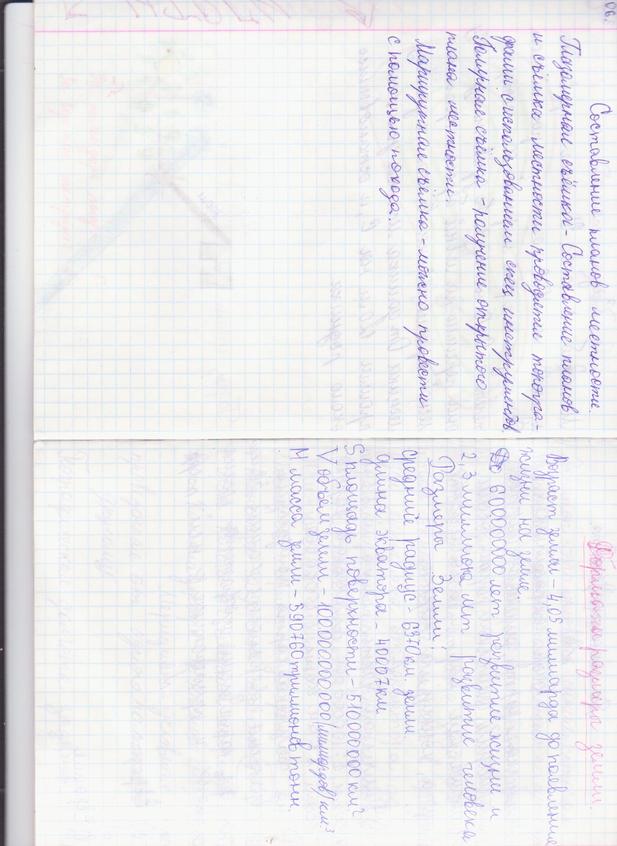 06.
Составление планов местности.
Глазомерная съёмка - Составление планов
и съёмка местности проводятся топогра-
фами с использованием спец инструментов
Полярная съёмка - получение открытого
плана местности.
Маршрутная съёмка - можно провести
с помощью похода.
Форма и размеры земли.
Возраст земли - 4,05 миллиарда до появления
жизни на земле.
До 600000000 лет развитие жизни и
2,3 миллиона лет развитие человека
Размеры Земли:
средний радиус - 6370 км земли
длина экватора - 40007 км
S площадь поверхности - 510000000 км²
V объем земли - 1000000000000 (миллиардов) км³
М масса земли - 590760 триллионов тонн.